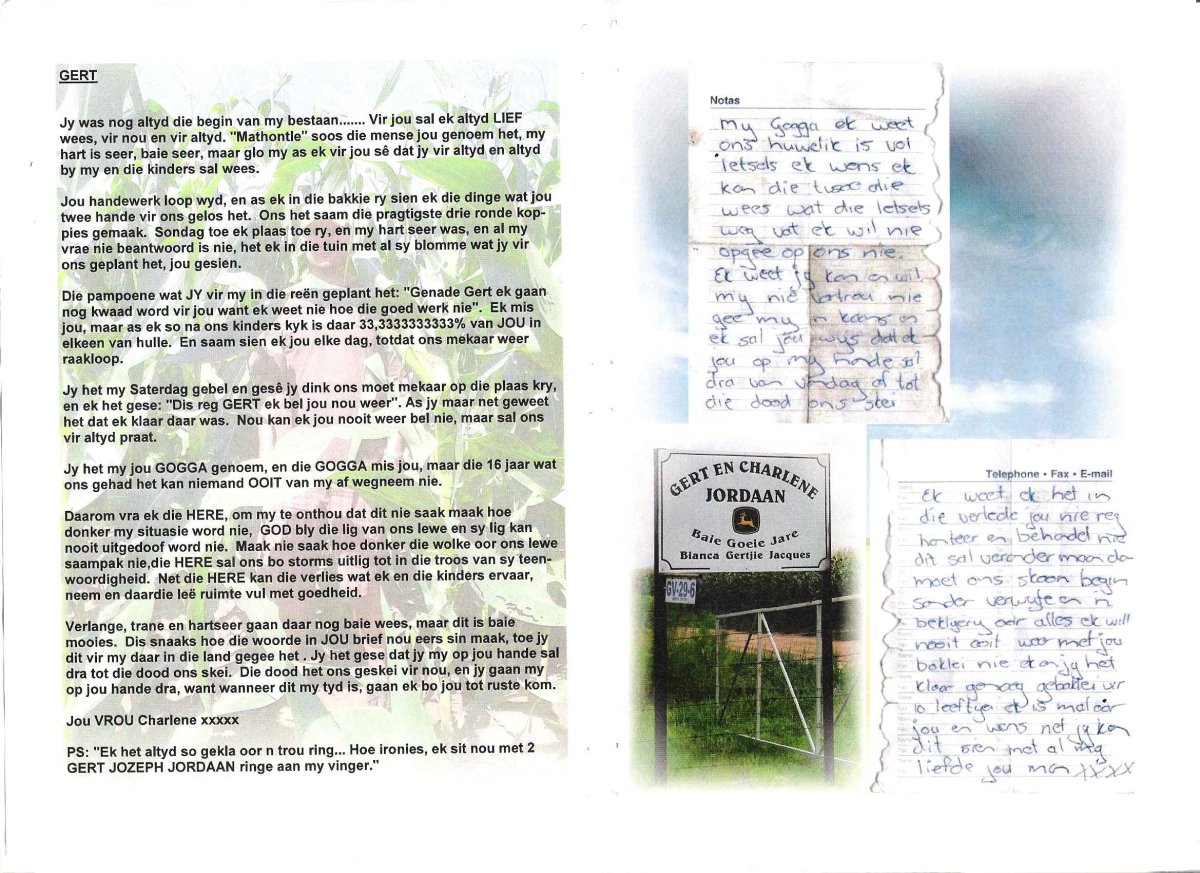 GERT
Jy was nog altyd die begin van my bestaan....... Vir jou sal ek altyd LIEF
wees, vir nou en vir altyd. "Mathontle" soos die mense jou genoem het, my
hart is seer, baie seer, maar glo my as ek vir jou sê dat jy vir altyd en altyd
by my en die kinders sal wees.
Jou handewerk loop wyd, en as ek in die bakkie ry sien ek die dinge wat jou
twee hande vir ons gelos het. Ons het saam die pragtigste drie ronde kop-
pies gemaak. Sondag toe ek plaas toe ry, en my hart seer was, en al my
vrae nie beantwoord is nie, het ek in die tuin met al sy blomme wat jy vir
ons geplant het, jou gesien.
Die pampoene wat JY vir my in die reën geplant het: "Genade Gert ek gaan
nog kwaad word vir jou want ek weet nie hoe die goed werk nie". Ek mis
jou, maar as ek so na ons kinders kyk is daar 33,3333333333% van JOU in
elkeen van hulle. En saam sien ek jou elke dag, totdat ons mekaar weer
raakloop.
Jy het my Saterdag gebel en gesê jy dink ons moet mekaar op die plaas kry,
en ek het gese: "Dis reg GERT ek bel jou nou weer". As jy maar net geweet
het dat ek klaar daar was. Nou kan ek jou nooit weer bel nie, maar sal ons
vir altyd praat.
Jy het my jou GOGGA genoem, en die GOGGA mis jou, maar die 16 jaar wat
ons gehad het kan niemand OOIT van my af wegneem nie.
Daarom vra ek die HERE, om my te onthou dat dit nie saak maak hoe
donker my situasie word nie, GOD bly die lig van ons lewe en sy lig kan
nooit uitgedoof word nie. Maak nie saak hoe donker die wolke oor ons lewe
saampak nie,die HERE sal ons bo storms uitlig tot in die troos van sy teen-
woordigheid. Net die HERE kan die verlies wat ek en die kinders ervaar,
neem en daardie leë ruimte vul met goedheid.
Verlange, trane en hartseer gaan daar nog baie wees, maar dit is baie
mooies. Dis snaaks hoe die woorde in JOU brief nou eers sin maak, toe jy
dit vir my daar in die land gegee het . Jy het gese dat jy my op jou hande sal
dra tot die dood ons skei. Die dood het ons geskei vir nou, en jy gaan my
op jou hande dra, want wanneer dit my tyd is, gaan ek bo jou tot ruste kom.
Jou VROU Charlene xxxxx
PS: "Ek het altyd so gekla oor n trou ring... Hoe ironies, ek sit nou met 2
GERT JOZEPH JORDAAN ringe aan my vinger."
Notas
My Gogga ek weet
ons huwelik is vol
letsels ek wens ek
kan die twee die
wees wat die letsels
weg vat ek wil nie
opgee op ons nie.
Ek weet jy kan en wil
my nie vertrou nie
gee my 'n kans en
ek sal jou wys dat ek
jou op my hande sal
dra van vandag af tot
die dood ons skei
GERT EN CHARLENE
JORDAAN
Baie Goeie Jare
Bianca Gertjie Jacques
GV-29-6
Telephone • Fax • E-mail
Ek weet ek het in
die verlede jou nie reg
hanteer en behandel nie
dit sal verander maar dan
moet ons skoon begin
sonder verwyte en 'n
bakleiery oor alles ek will
nooit ooit weer met jou
baklei nie dan jy het
klaar genoeg gebaklei vir
10 leeftye ek is mal oor
jou en wens net jy kan
dit sien met al my
liefde jou man xxxx